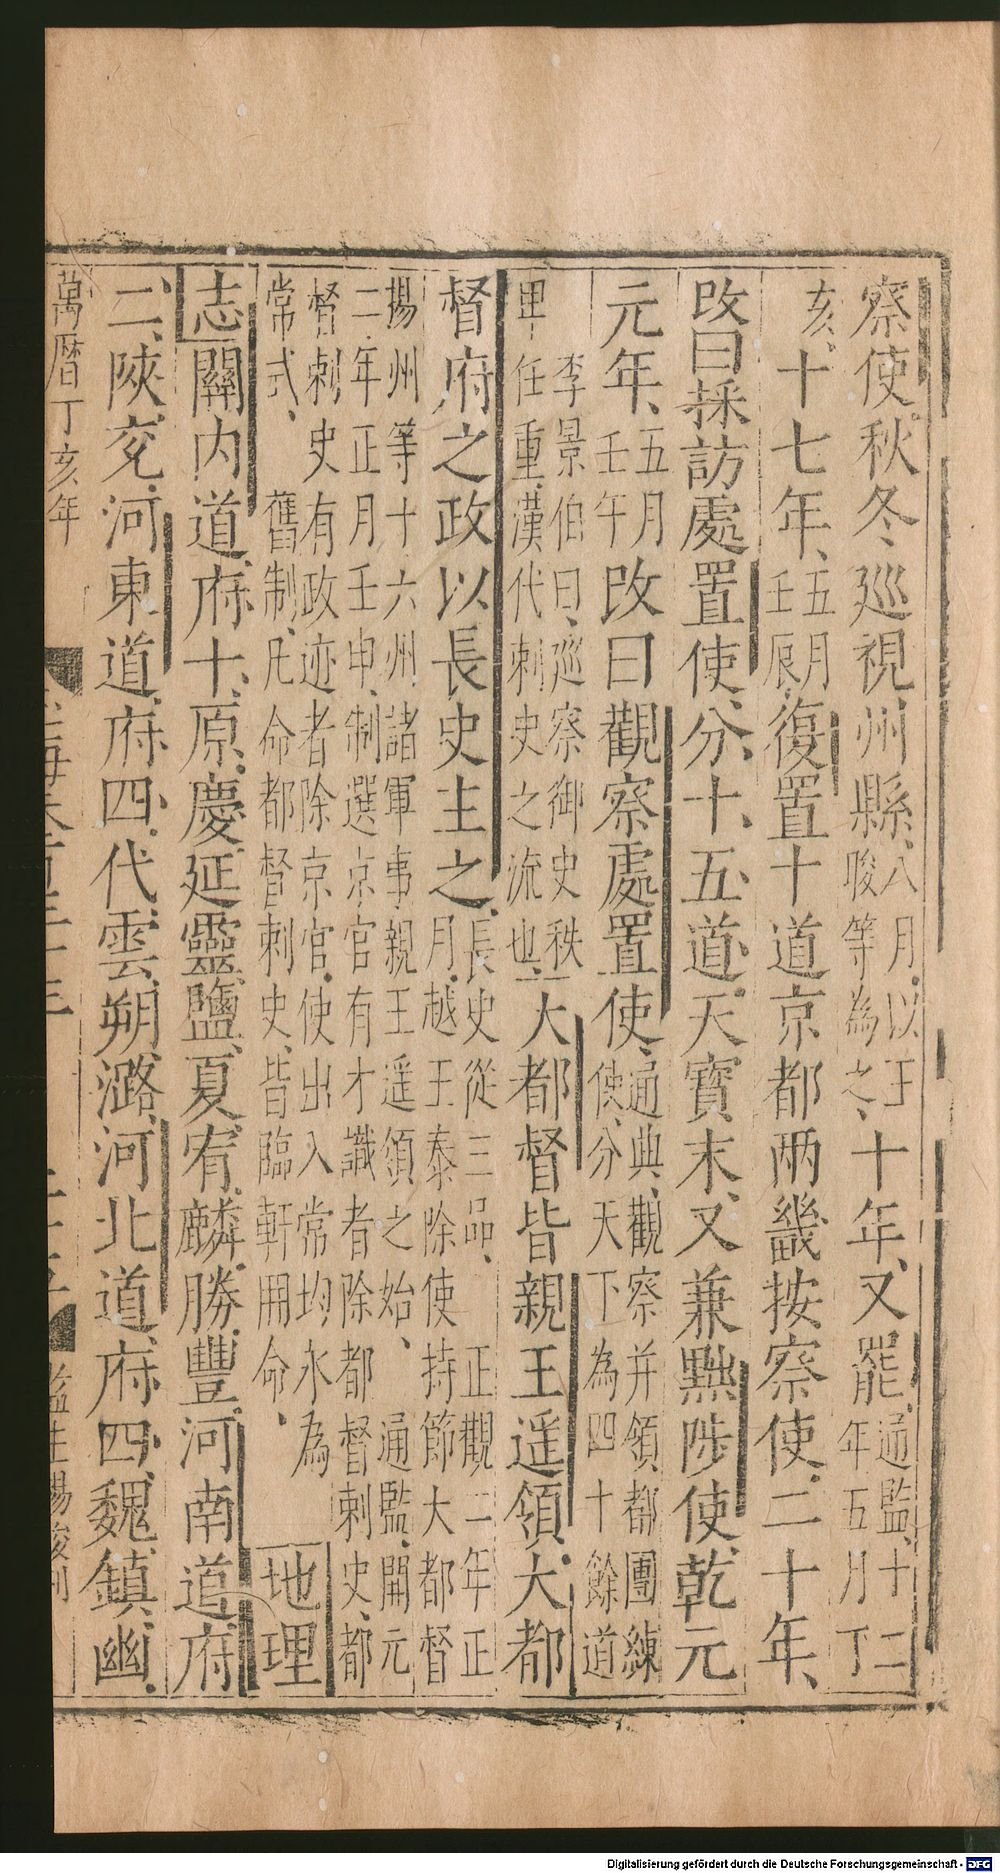 察使、秋冬、巡視州縣、八月以王晙等為之、十年、又罷通監十二年五月丁
亥、十七年、五月壬辰、復置十道京都兩畿按察使、二十年、
改曰採訪處置使、分十五道、天寶末、又兼黜陟使、乾元
元年、五月壬午改曰觀察處置使、通典、觀察并領都團練使、分天下為四十餘道
李景伯曰、巡察御史秩卑任重、漢代刺史之流也、大都督皆親王遥領、大都
督府之政以長史主之、長史從三品、正觀二年正月、越王泰除使持節大都督
揚州等十六州諸軍事親王遥領之始、通監、開元二年正月壬申、制選京官有才識者除都督刺史、都
督刺史有政迹者除京官、使出入常均、永為常式、舊制、凡命都督刺史、皆臨軒冊命、地理
志關内道、府十、原、慶、延、靈、鹽、夏、宥、麟、勝、豐、河南道、府
二、陝、兗、河東道、府四、代、雲、朔、潞、河北道、府四、魏、鎮、幽、
萬曆丁亥年
Digitalisierung gefördert durch die Deutsche Forschungsgemeinschaft - DFG